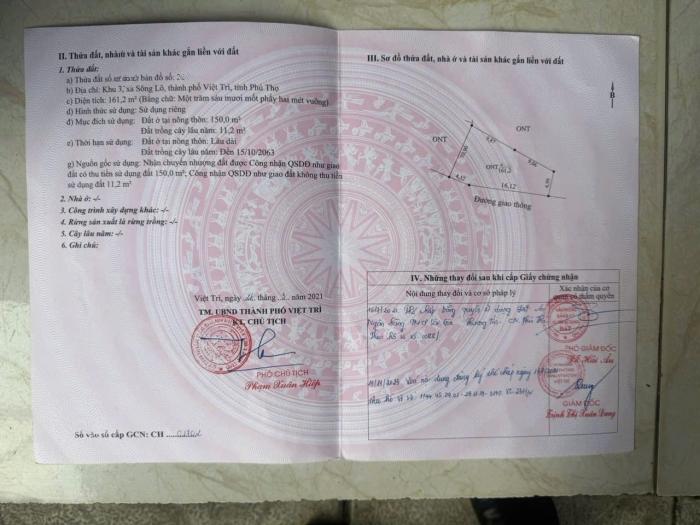 II. Thửa đất, nhà ở và tài sản khác gắn liền với đất
1. Thửa đất:
a) Thửa đất số tờ bản đồ số:
b) Địa chỉ: Khu 3, xã Sông Lô, thành phố Việt Trì, tỉnh Phú Thọ
c) Diện tích: 161,2 m² (Bằng chữ: Một trăm sáu mươi mốt phẩy hai mét vuông)
d) Hình thức sử dụng: Sử dụng riêng
đ) Mục đích sử dụng: Đất ở tại nông thôn: 150,0 m²
Đất trồng cây lâu năm: 11,2 m²
e) Thời hạn sử dụng: Đất ở tại nông thôn: Lâu dài
Đất trồng cây lâu năm: Đến 15/10/2063
g) Nguồn gốc sử dụng: Nhận chuyển nhượng đất được Công nhận QSDĐ như giao
đất có thu tiền sử dụng đất 150,0 m²; Công nhận QSDĐ như giao đất không thu tiền
sử dụng đất 11,2 m²
2. Nhà ở: -/-
3. Công trình xây dựng khác: -/-
4. Rừng sản xuất là rừng trồng: -/-
5. Cây lâu năm: -/-
6. Ghi chú:
Việt Trì, ngày tháng năm 2021
TM. UBND THÀNH PHỐ VIỆT TRÌ
KT. CHỦ TỊCH
PHÓ CHỦ TỊCH
Phạm Xuân Hiệp
Số vào sổ cấp GCN: CH
III. Sơ đồ thửa đất, nhà ở và tài sản khác gắn liền với đất
B
ONT
ONT
161,2
16,12
Đường giao thông
IV. Những thay đổi sau khi cấp Giấy chứng nhận
Nội dung thay đổi và cơ sở pháp lý
Xác nhận của cơ quan có thẩm quyền
PHÓ GIÁM ĐỐC
Lê Hải Âu
GIÁM ĐỐC
Trịnh Thị Xuân Dung